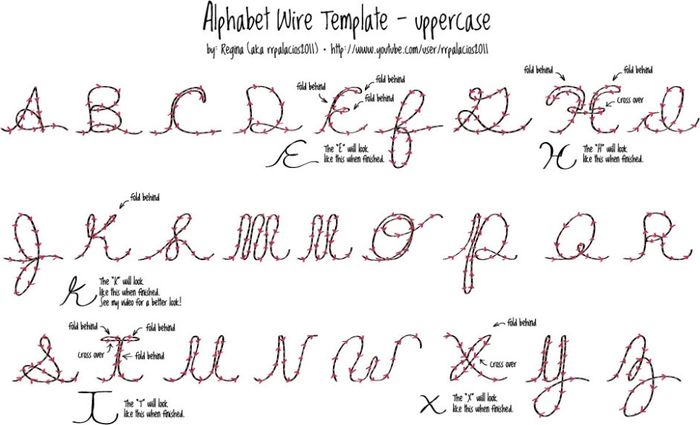 Alphabet Wire Template - uppercase
by: Regina (aka rrpalacios2011) • http://www.youtube.com/user/rrpalacios2011
fold behind
fold behind
fold behind
fold behind
fold behind
cross over
A B C D E f G H I
E
The "E" will look
like this when finished.
H
The "H" will look
like this when finished.
fold behind
J K L M N O P Q R
k
The "K" will look
like this when finished.
See my video for a better look!
fold behind
fold behind
cross over
fold behind
fold behind
cross over
S T U V W X Y Z
T
The "T" will look
like this when finished.
X
The "X" will look
like this when finished.